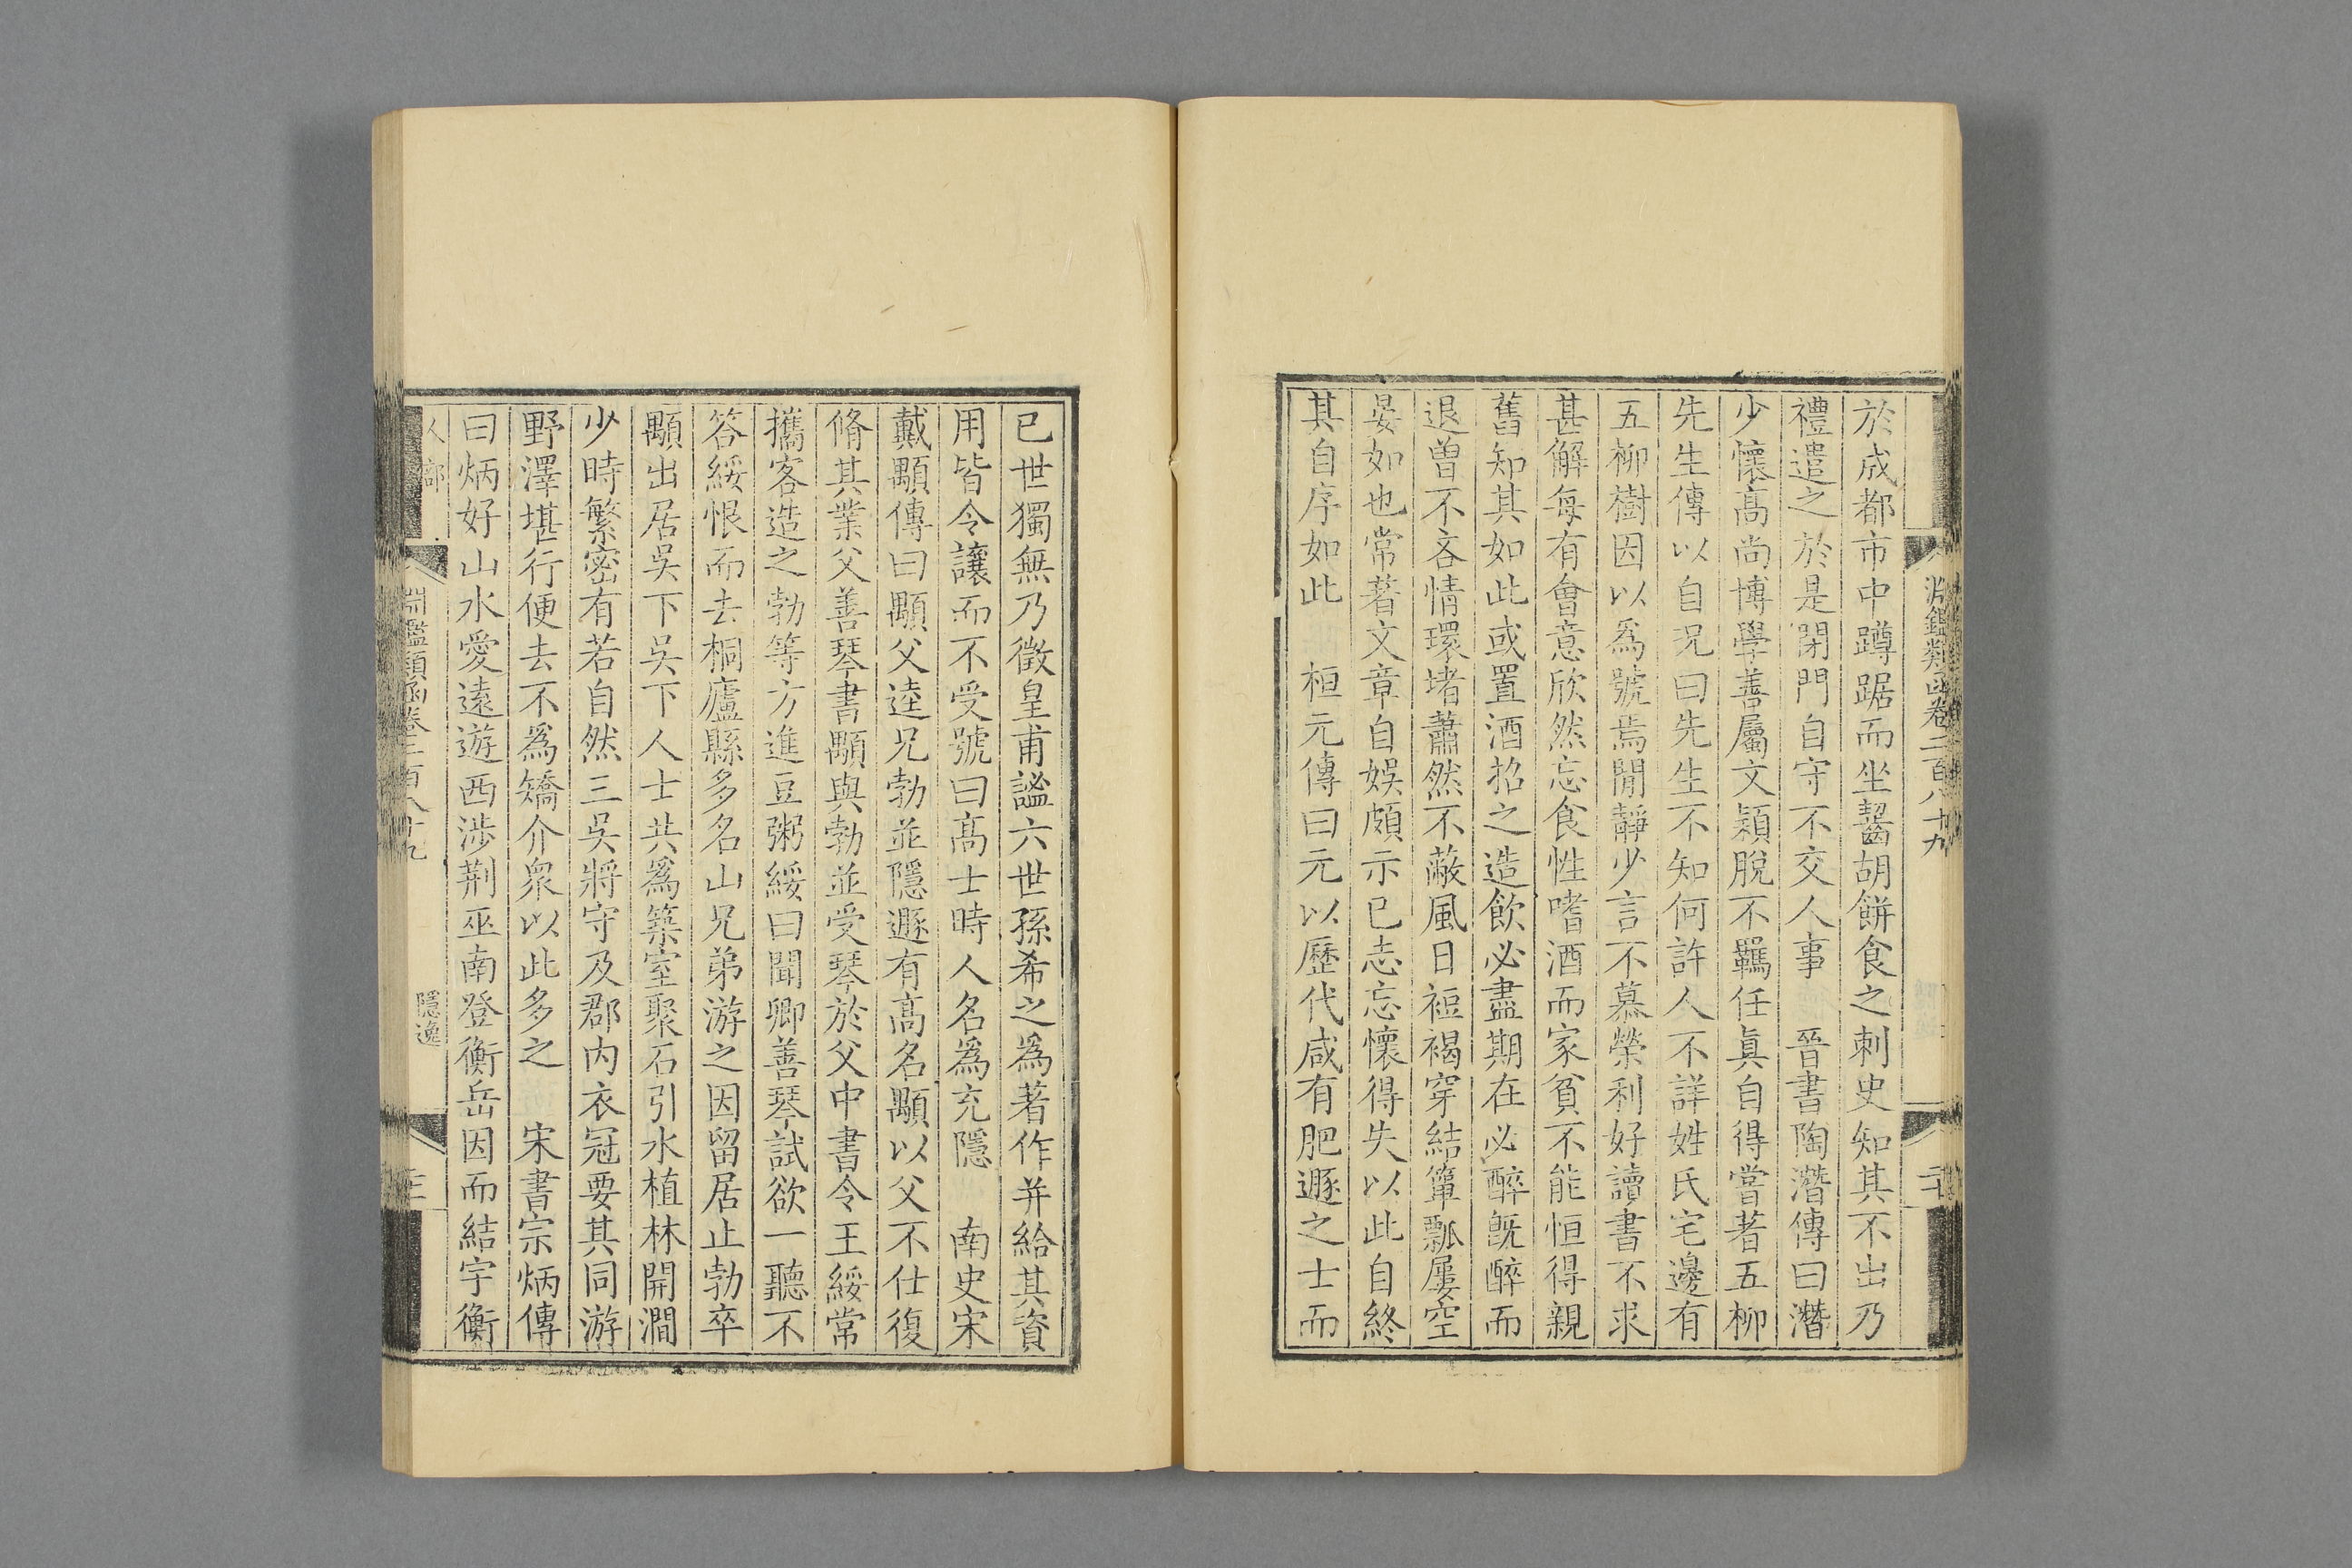 淵鑑類函卷二百八十九
二十
於成都市中蹲踞而坐齧胡餅食之刺史知其不出乃
禮遣之於是閉門自守不交人事 晉書陶潛傳曰潛
少懷高尚博學善屬文穎脫不羈任眞自得嘗著五柳
先生傳以自况曰先生不知何許人不詳姓氏宅邊有
五柳樹因以爲號焉閒靜少言不慕榮利好讀書不求
甚解每有會意欣然忘食性嗜酒而家貧不能恒得親
舊知其如此或置酒招之造飲必盡期在必醉旣醉而
退曾不吝情環堵蕭然不蔽風日裋褐穿結簞瓢屢空
晏如也常著文章自娛頗示已志忘懷得失以此自終
其自序如此 桓元傳曰元以歷代咸有肥遯之士而
已世獨無乃徵皇甫謐六世孫希之爲著作并給其資
用皆令讓而不受號曰高士時人名爲充隱 南史宋
戴顒傳曰顒父逵兄勃並隱遯有高名顒以父不仕復
脩其業父善琴書顒與勃並受琴於父中書令王綏常
攜客造之勃等方進豆粥綏曰聞卿善琴試欲一聽不
答綏恨而去桐廬縣多名山兄弟游之因留居止勃卒
顒出居吳下吳下人士共爲築室聚石引水植林開澗
少時繁密有若自然三吳將守及郡內衣冠要其同游
野澤堪行便去不爲矯介衆以此多之 宋書宗炳傳
曰炳好山水愛遠遊西涉荆巫南登衡岳因而結宇衡
人部
淵鑑類函卷二百八十九
隱逸